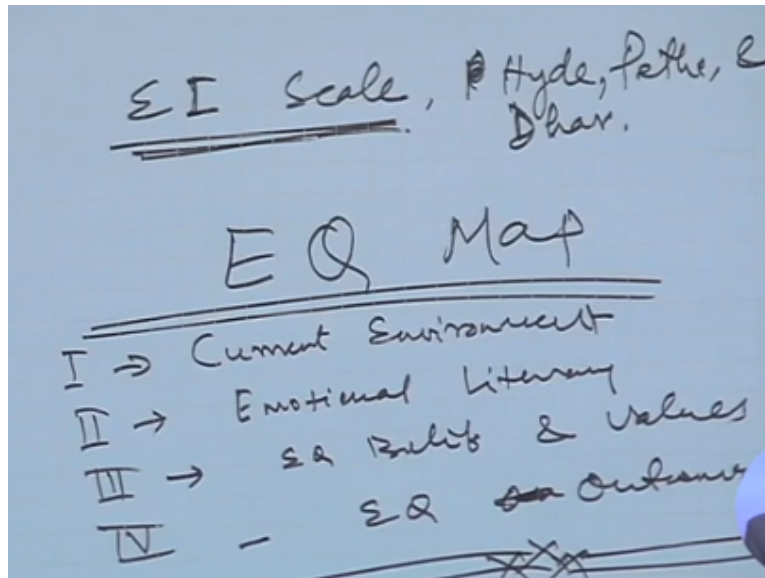 EI Scale, Hyde, Pethe, &
Dhar.
EQ Map
I → Current Environment
II → Emotional Literacy
III → EQ Beliefs & Values
IV - EQ Outcomes